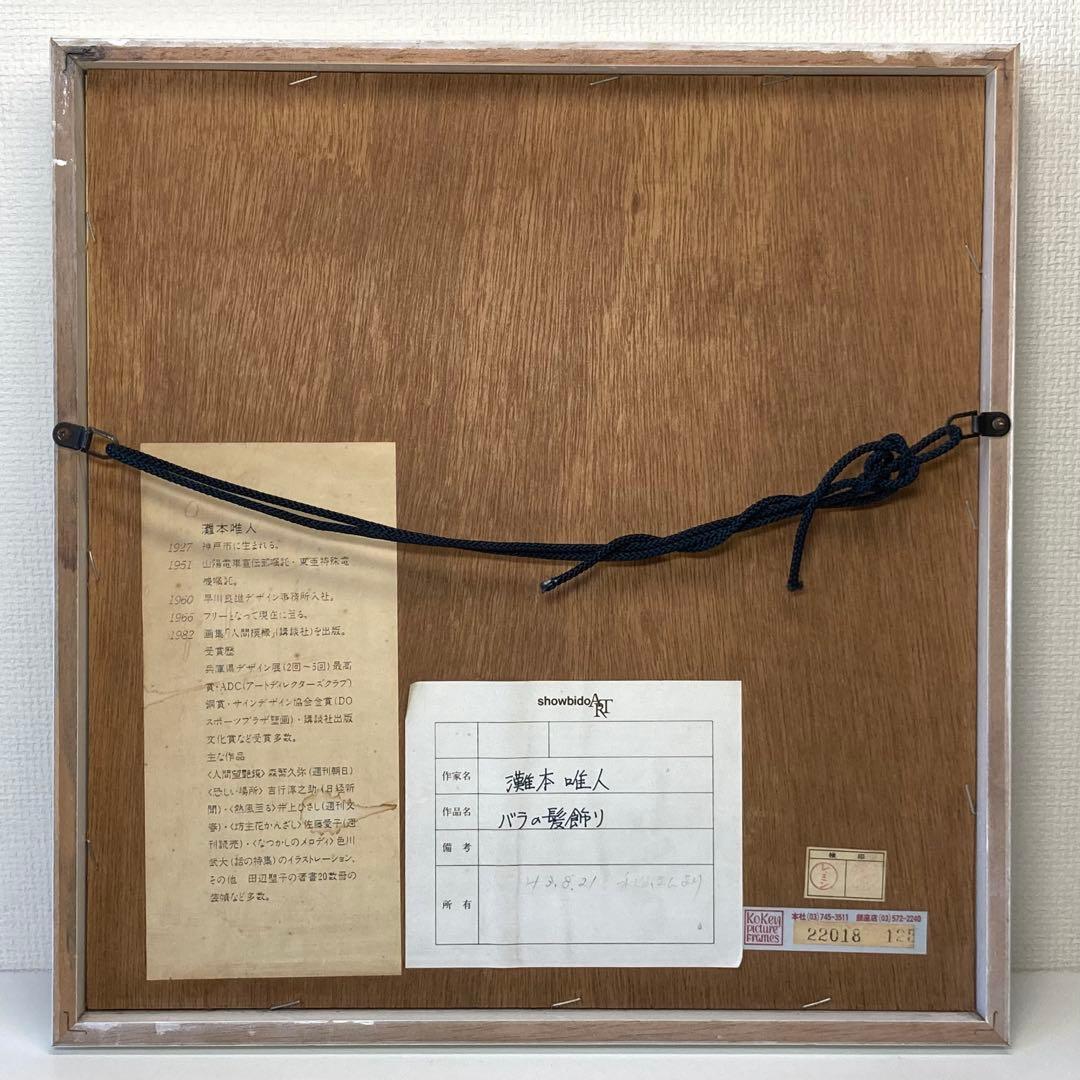 灘本唯人
1927 神戸市に生まれる。
1951 山陽電車宣伝部嘱託・東亜特殊電
機嘱託。
1960 早川良雄デザイン事務所入社。
1966 フリーとなって現在に至る。
1982 画集「人間模様」(講談社)を出版。
受賞歴
兵庫県デザイン展(2回〜5回)最高
賞・ADC(アートディレクターズクラブ)
銅賞・サインデザイン協会金賞(DO
スポーツプラザ壁画)・講談社出版
文化賞など受賞多数。
主な作品
〈人間望艶鏡〉森繁久弥(週刊朝日)
〈恐しい場所〉吉行淳之助(日経新
聞)・〈熱風至る〉井上ひさし(週刊文
春)・〈坊主花かんざし〉佐藤愛子(週
刊読売)・〈なつかしのメロディ〉色川
武大(話の特集)のイラストレーション、
その他 田辺聖子の著書20数冊の
装幀など多数。
showbido ART
作家名 灘本 唯人
作品名 バラの髪飾り
備考
所有 43.8.21 より
検 印
レミン
KoKeyi picture Frames
本社(03)745-3511 銀座店(03)572-2240
22018 125